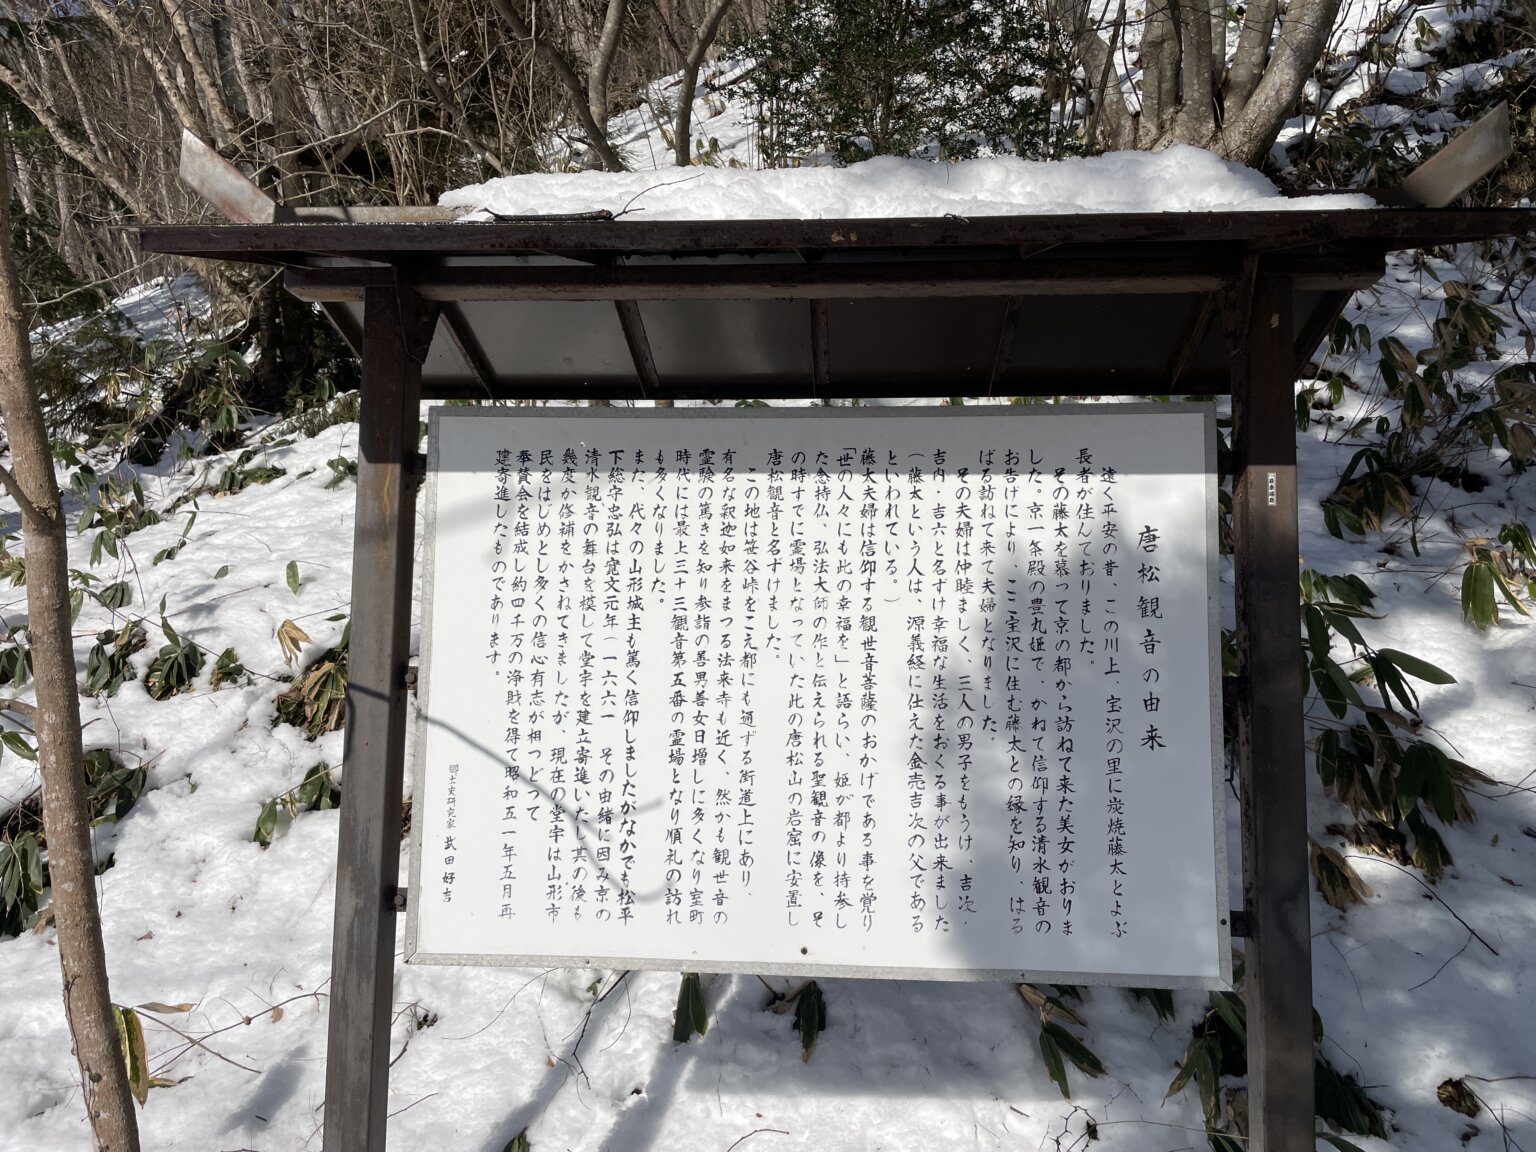 唐松観音の由来
遠く平安の昔、この川上、宝沢の里に炭焼藤太とよぶ
長者が住んでおりました。
その藤太を慕って京の都から訪ねて来た美女がおりま
した。京一条殿の豊丸姫で、かねて信仰する清水観音の
お告げにより、ここ宝沢に住む藤太との縁を知り、はる
ばる訪ねて来て夫婦となりました。
その夫婦は仲睦ましく、三人の男子をもうけ、吉次・
吉内・吉六と名ずけ幸福な生活をおくる事が出来ました
（藤太という人は、源義経に仕えた金売吉次の父である
といわれている。）
藤太夫婦は信仰する観世音菩薩のおかげである事を覚り
「世の人々にも此の幸福を」と語らい、姫が都より持参し
た念持仏、弘法大師の作と伝えられる聖観音の像を、そ
の時すでに霊場となっていた此の唐松山の岩窟に安置し
唐松観音と名ずけました。
この地は笹谷峠をこえ都にも通ずる街道上にあり、
有名な釈迦如来をまつる法来寺も近く、然かも観世音の
霊験の篤きを知り参詣の善男善女日増しに多くなり室町
時代には最上三十三観音第五番の霊場となり順礼の訪れ
も多くなりました。
また、代々の山形城主も篤く信仰しましたがなかでも松平
下総守忠弘は寛文元年（一六六一 その由緒に因み京の
清水観音の舞台を模して堂宇を建立寄進いたし其の後も
幾度か修補をかさねてきましたが、現在の堂宇は山形市
民をはじめとし多くの信心有志が相つどって
奉賛会を結成し約四千万の浄財を得て昭和五一年五月再
建寄進したものであります。
郷土史研究家 武田好吉